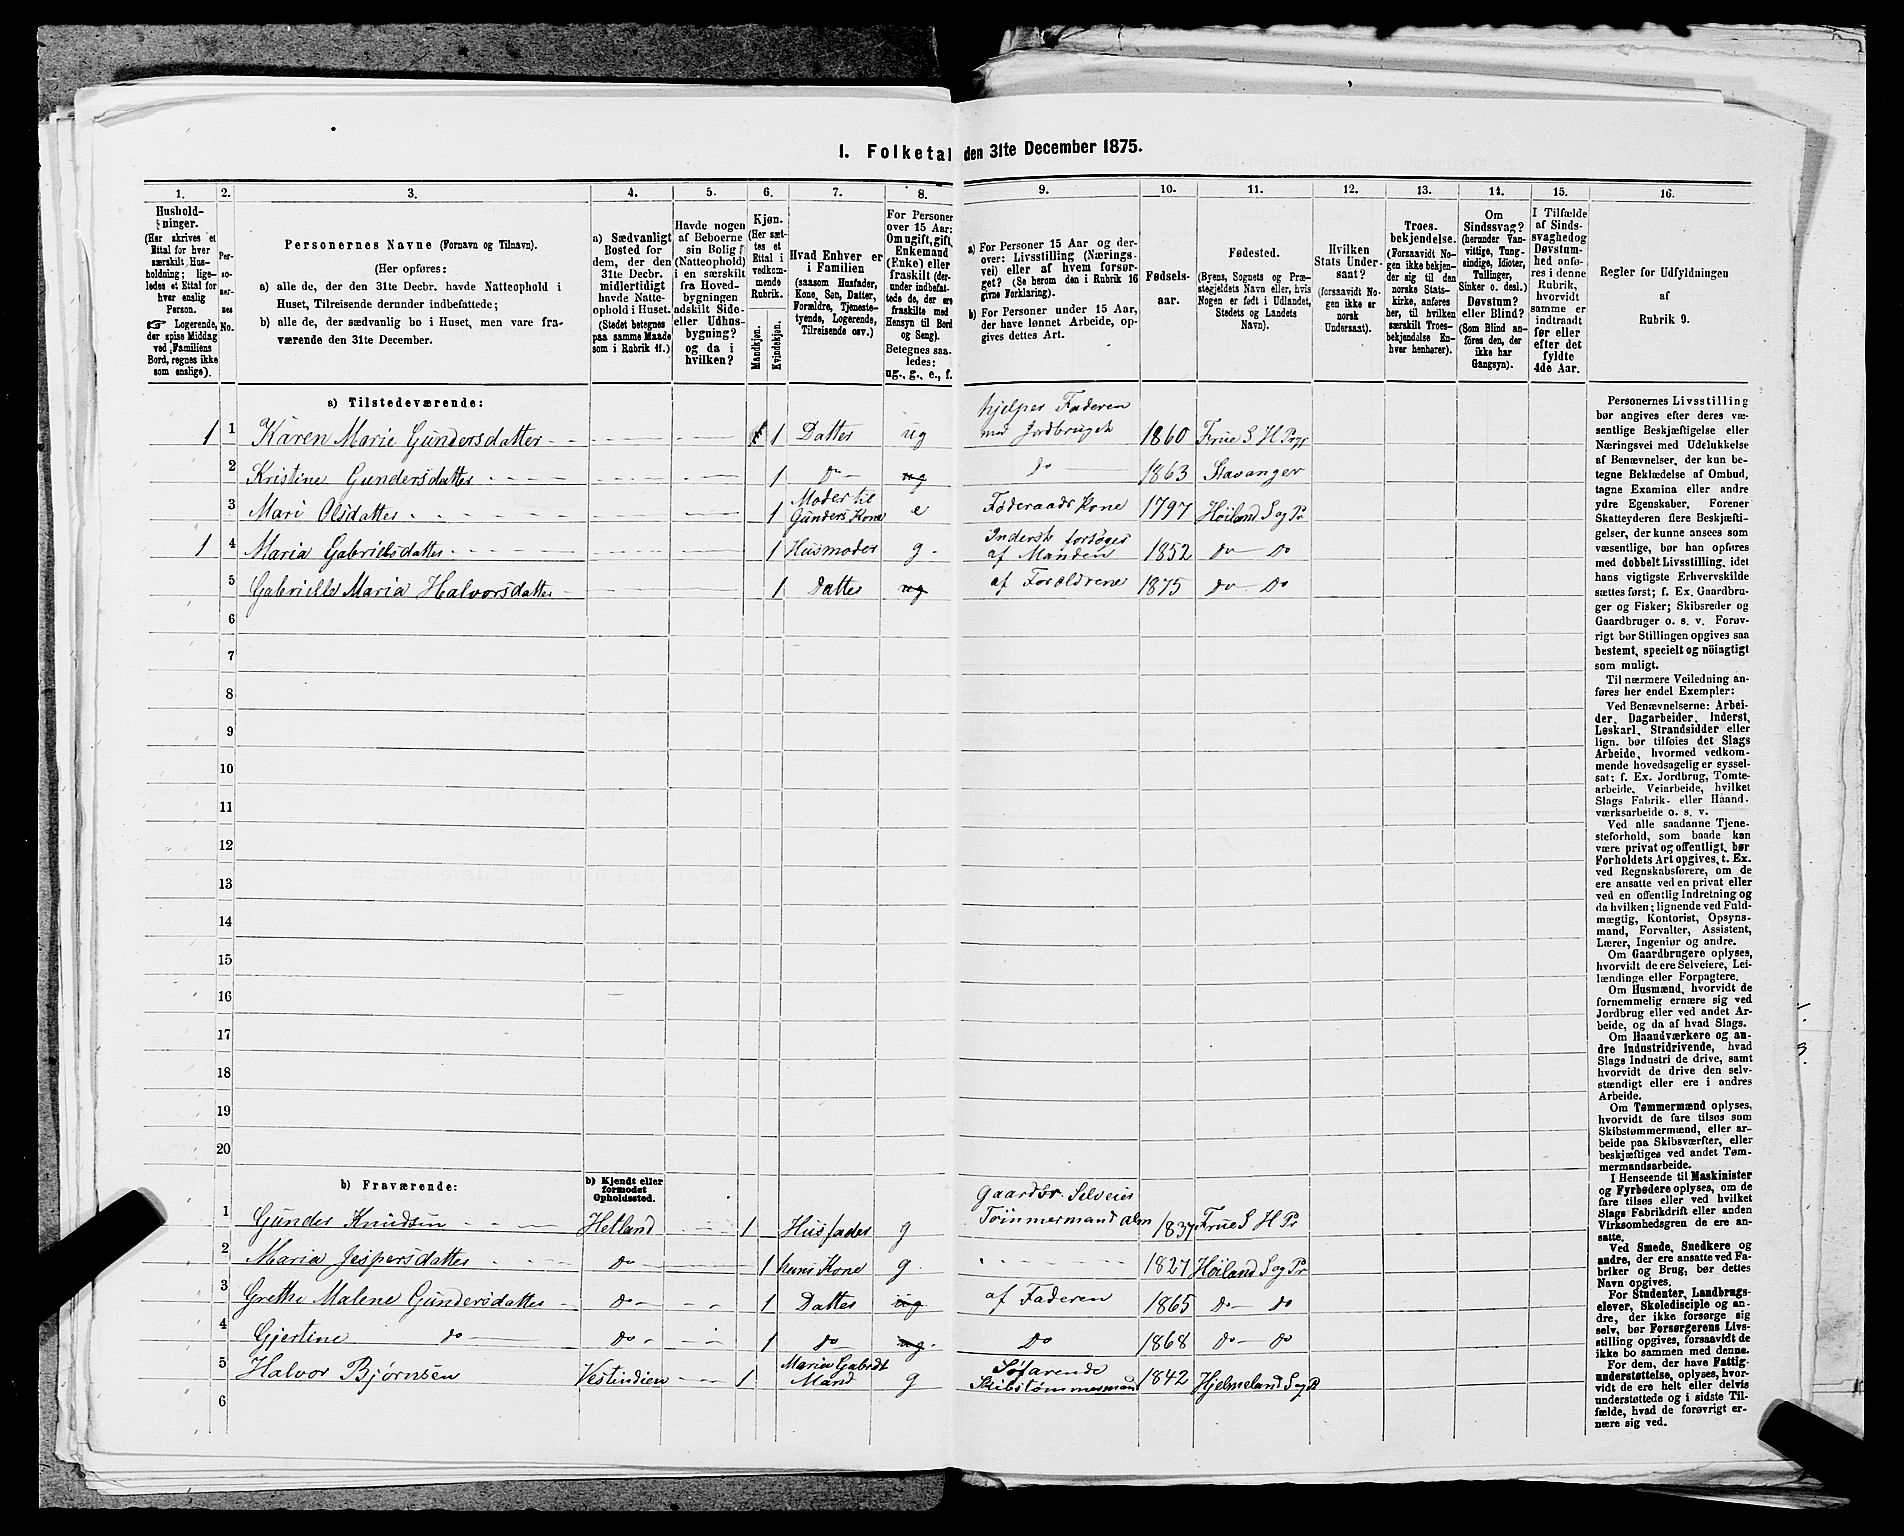 1. Folketal den 31te December 1875.
1. 2. 3. 4. 5. 6. 7. 8. 9. 10. 11. 12. 13. 14. 15. 16.
Hushold-
ninger.
(Her skrives et
Ettal for hver
særskilt Hus-
holdning; lige-
ledes et Ettal for
hver enslig
Person.
☞ Logerende,
der spise Middag
ved Familiens
Bord, regnes ikke
som enslige).
Per-
so-
ner-
nes
No.
Personernes Navne (Fornavn og Tilnavn).
(Her opføres:
a) alle de, der den 31te Decbr. havde Natteophold i
Huset, Tilreisende derunder indbefattede;
b) alle de, der sædvanlig bo i Huset, men vare fra-
værende den 31te December.
a) Sædvanligt
Bosted for
dem, der den
31te Decbr.
midlertidigt
havde Natte-
ophold i Huset.
(Stedet betegnes
paa samme Maade
som i Rubrik 11.)
Havde nogen
af Beboerne
sin Bolig
(Natteophold)
i en særskilt
fra Hoved-
bygningen
adskilt Side-
eller Udhus-
bygning?
og da i
hvilken?
Kjøn.
(Her sæt-
tes et
Ettal i
vedkom-
mende
Rubrik.
Mandkjøn.
Kvindekjøn.
Hvad Enhver er
i Familien
(saasom Husfader,
Kone, Søn, Datter,
Forældre, Tjeneste-
tyende, Logerende,
Tilreisende osv.)
For Personer
over 15 Aar:
Om ugift, gift,
Enkemand
(Enke) eller
fraskilt (der-
under indbefat-
tede de, der ere
fraskilte med
Hensyn til Bord
og Seng).
Betegnes saa-
ledes:
ug., g., e., f.
a) For Personer 15 Aar og der-
over: Livsstilling (Nærings-
vei) eller af hvem forsør-
get? (Se herom den i Rubrik 16
givne Forklaring).
b) For Personer under 15 Aar,
der have lønnet Arbeide, op-
gives dettes Art.
Fødsels-
aar.
Fødested.
(Byens, Sognets og Præ-
stegjeldets Navn eller, hvis
Nogen er født i Udlandet,
Stedets og Landets
Navn).
Hvilken
Stats Under-
saat?
(forsaavidt No-
gen ikke er
norsk
Undersaat).
Troes-
bekjendelse.
(Forsaavidt No-
gen ikke bekjen-
der sig til den
norske Stats-
kirke, anføres
her, til hvilken
særskilt Troes-
bekjendelse En-
hver henhører).
Om
Sindssvag?
(herunder Van-
vittige, Tung-
sindige, Idioter,
Tullinger,
Sinker o. desl.)
Døvstum?
eller Blind?
(Som Blind an-
føres den, der
ikke har
Gangsyn).
I Tilfælde
af Sinds-
svaghed og
Døvstum-
hed anfø-
res i denne
Rubrik,
hvorvidt
samme er
indtraadt
før eller
efter det
fyldte
4de Aar.
Regler for Udfyldningen
af
Rubrik 9.
a) Tilstedeværende:
1 1 Karen Marie Gundersdatter 1 Datter ug hjelper Faderen med Jordbruget 1860 Frue S H Prgj
2 Kristine Gundersdatter 1 Do ug do 1863 Stavanger
3 Mari Olsdatter 1 Moder til Gunders Kone e Føderaads Kone 1797 Høiland S og Pr
1 4 Maria Gabrielsdatter 1 Husmoder g. Inderst forsøges af Manden 1852 do Do
5 Gabrielle Maria Halvorsdatter 1 Datter ug af Forældrene 1875 do Do
6
7
8
9
10
11
12
13
14
15
16
17
18
19
20
b) Fraværende:
b) Kjendt eller
formodet
Opholdssted.
1 Gunder Knudsen Hetland 1 Husfader g Gaardbr. Selveier Tømmermand alm 1837 Frue S H Pr
2 Maria Jespersdatter do 1 hans Kone g. 1827 Høiland S og Pr
3 Grethe Malene Gundersdatter do 1 Datter ug af Faderen 1865 do do
4 Gjertine do do 1 do ug. Do 1868 do Do
5 Halvor Bjørnsen Vestindien 1 Maria Gabrdt Mand g Søfarende Skibstømmermand 1842 Hjelmeland S og P
6
Personernes Livsstilling
bør angives efter deres væ-
sentlige Beskjæftigelse eller
Næringsvei med Udelukkelse
af Benævnelser, der kun be-
tegne Beklædelse af Ombud,
tagne Examina eller andre
ydre Egenskaber. Forener
Skatteyderen flere Beskjæfti-
gelser, der kunne ansees som
væsentlige, bør han opføres
med dobbelt Livsstilling, idet
hans vigtigste Erhvervskilde
sættes først; f. Ex. Gaardbru-
ger og Fisker; Skibsreder og
Gaardbruger o. s. v. Forøv-
rigt bør Stillingen opgives saa
bestemt, specielt og nöiagtigt
som muligt.
Til nærmere Veiledning an-
føres her endel Exempler:
Ved Benævnelserne: Arbei-
der, Dagarbeider, Inderst,
Løskarl, Strandsidder eller
lign. bør tilføies det Slags
Arbeide, hvormed vedkom-
mende hovedsagelig er syssel-
sat; f. Ex. Jordbrug, Tomte-
arbeide, Veiarbeide, hvilket
Slags Fabrik- eller Haand-
værksarbeide o. s. v.
Ved alle saadanne Tjene-
steforhold, som baade kan
være privat og offentligt, bør
Forholdets Art opgives, t. Ex.
ved Regnskabsførere, om de
ere ansatte ved en privat eller
ved en offentlig Indretning og
da hvilken; lignende ved Fuld-
mægtig, Kontorist, Opsyns-
mand, Forvalter, Assistent,
Lærer, Ingeniør og andre.
Om Gaardbrugere oplyses,
hvorvidt de ere Selveiere, Lei-
lændinge eller Forpagtere.
Om Husmænd, hvorvidt de
fornemmelig ernære sig ved
Jordbrug eller ved andet Ar-
beide, og da af hvad Slags.
Om Haandværkere og an-
dre Industridrivende, hvad
Slags Industri de drive, samt
hvorvidt de drive den selv-
stændigt eller ere i andres
Arbeide.
Om Tømmermænd oplyses,
hvorvidt de fare tilsøs som
Skibstømmermænd, eller ar-
beide paa Skibsværfter, eller
beskjæftiges ved andet Tøm-
mermandsarbeide.
I Henseende til Maskinister
og Fyrbødere oplyses, om de
fare tilsøs eller ved hvilket
Slags Fabrikdrift eller anden
Virksomhedsgren de ere an-
satte.
Ved Smede, Snedkere og
andre, der ere ansatte ved Fa-
briker og Brug, bør dettes
Navn opgives.
For Studenter, Landbrugs-
elever, Skoledisciple og an-
dre, der ikke forsørge sig
selv, bør Forsørgerens Livs-
stilling opgives, forsaavidt de
ikke bo sammen med denne.
For dem, der have Fattig-
understøttelse, oplyses, hvor-
vidt de ere helt eller delvis
understøttede og i sidste Til-
fælde, hvad de forøvrigt er-
nære sig ved.